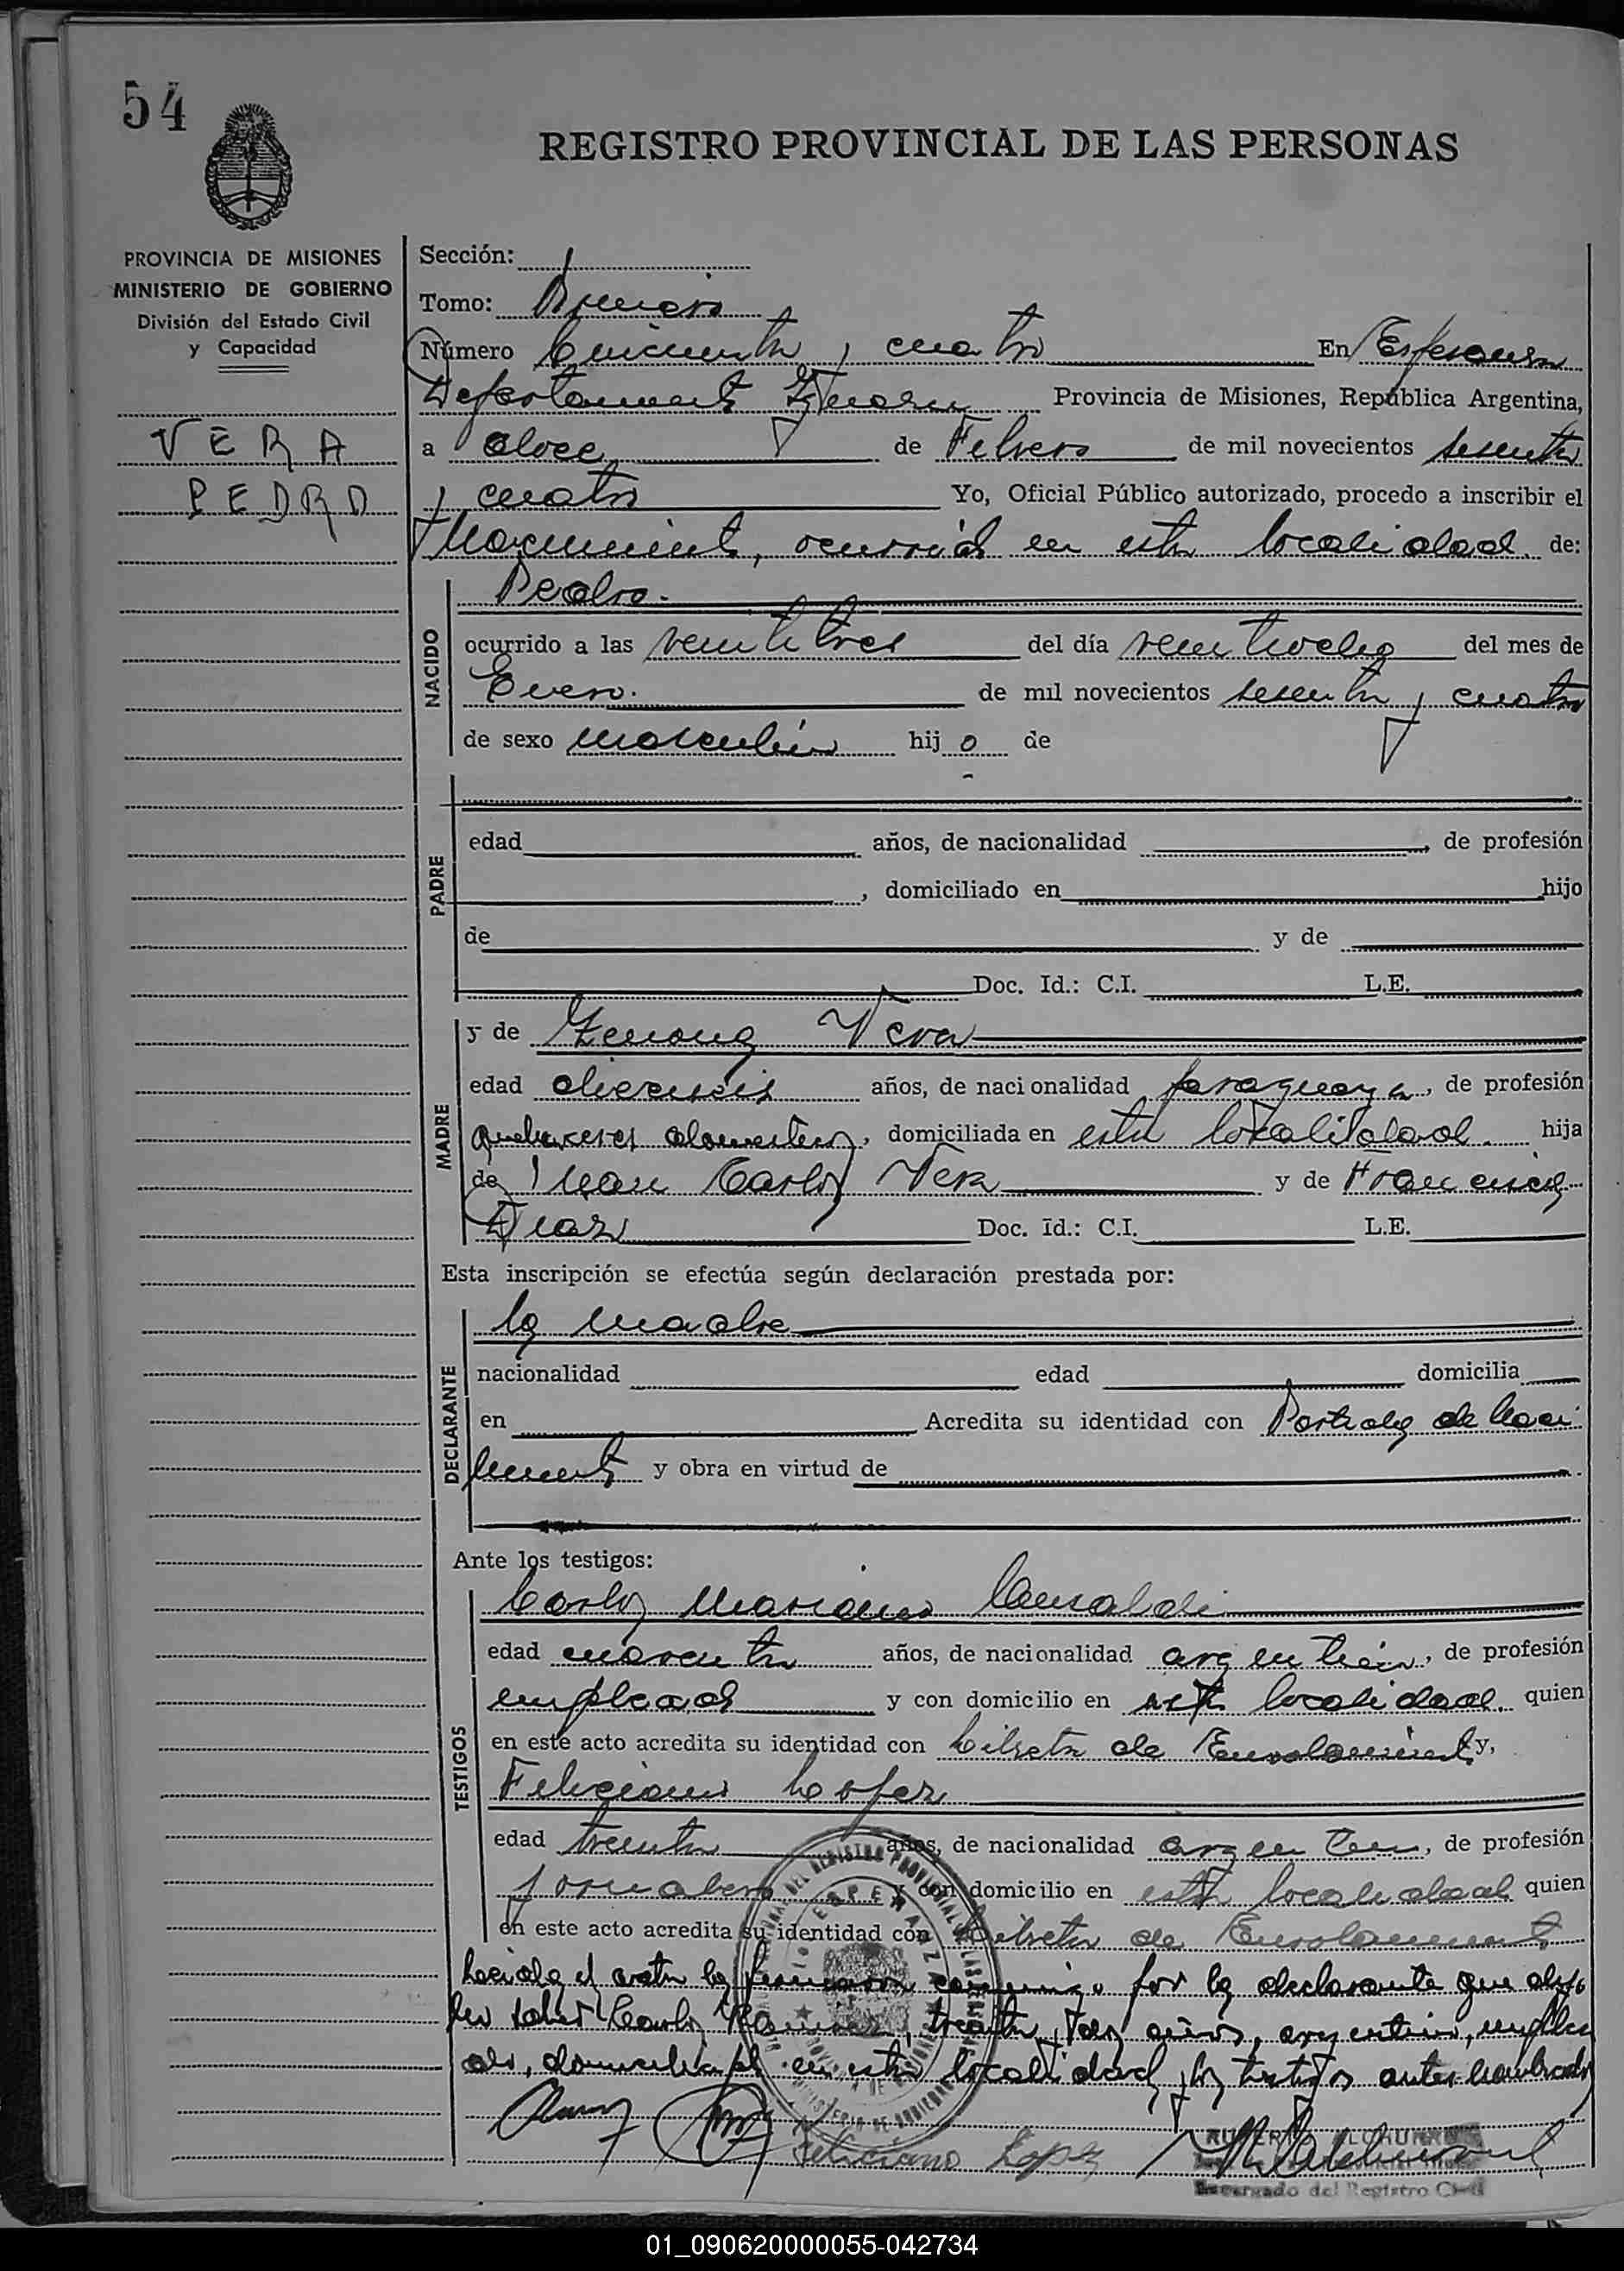 54
REGISTRO PROVINCIAL DE LAS PERSONAS
PROVINCIA DE MISIONES
MINISTERIO DE GOBIERNO
División del Estado Civil
y Capacidad
VERA
PEDRO
Sección: 1
Tomo: Primero
Número Cincuenta y cuatro En Esperanza
Departamento Iguazú Provincia de Misiones, República Argentina,
a doce de Febrero de mil novecientos sesenta
y cuatro Yo, Oficial Público autorizado, procedo a inscribir el
Nacimiento, ocurrido en esta localidad de:
NACIDO
Pedro.
ocurrido a las veintitres del día veintiocho del mes de
Enero. de mil novecientos sesenta y cuatro
de sexo masculino hijo de
PADRE
edad años, de nacionalidad , de profesión
, domiciliado en hijo
de y de
Doc. Id.: C.I. L.E.
MADRE
y de Zenona Vera
edad dieciseis años, de nacionalidad paraguaya, de profesión
quehaceres domesticos, domiciliada en esta localidad hija
de Juan Carlos Vera y de Francisca
Diaz Doc. Id.: C.I. L.E.
Esta inscripción se efectúa según declaración prestada por:
DECLARANTE
la madre
nacionalidad edad domicilia
en Acredita su identidad con Partida de Naci
miento y obra en virtud de
Ante los testigos:
TESTIGOS
Carlos Mariano
edad cuarenta años, de nacionalidad argentina, de profesión
empleado y con domicilio en esta localidad quien
en este acto acredita su identidad con Libreta de Enrolamiento y,
Feliciano Lopez
edad treinta años, de nacionalidad argentina, de profesión
jornalero y con domicilio en esta localidad quien
en este acto acredita su identidad con Libreta de Enrolamiento
Leída el acta la conmigo por la declarante que dijo
no saber Carlos Ramirez, treinta y dos años, argentino, emplea
do, domiciliado en esta localidad y los testigos antes nombrados
Feliciano Lopez
Encargado del Registro Civil
01_090620000055-042734